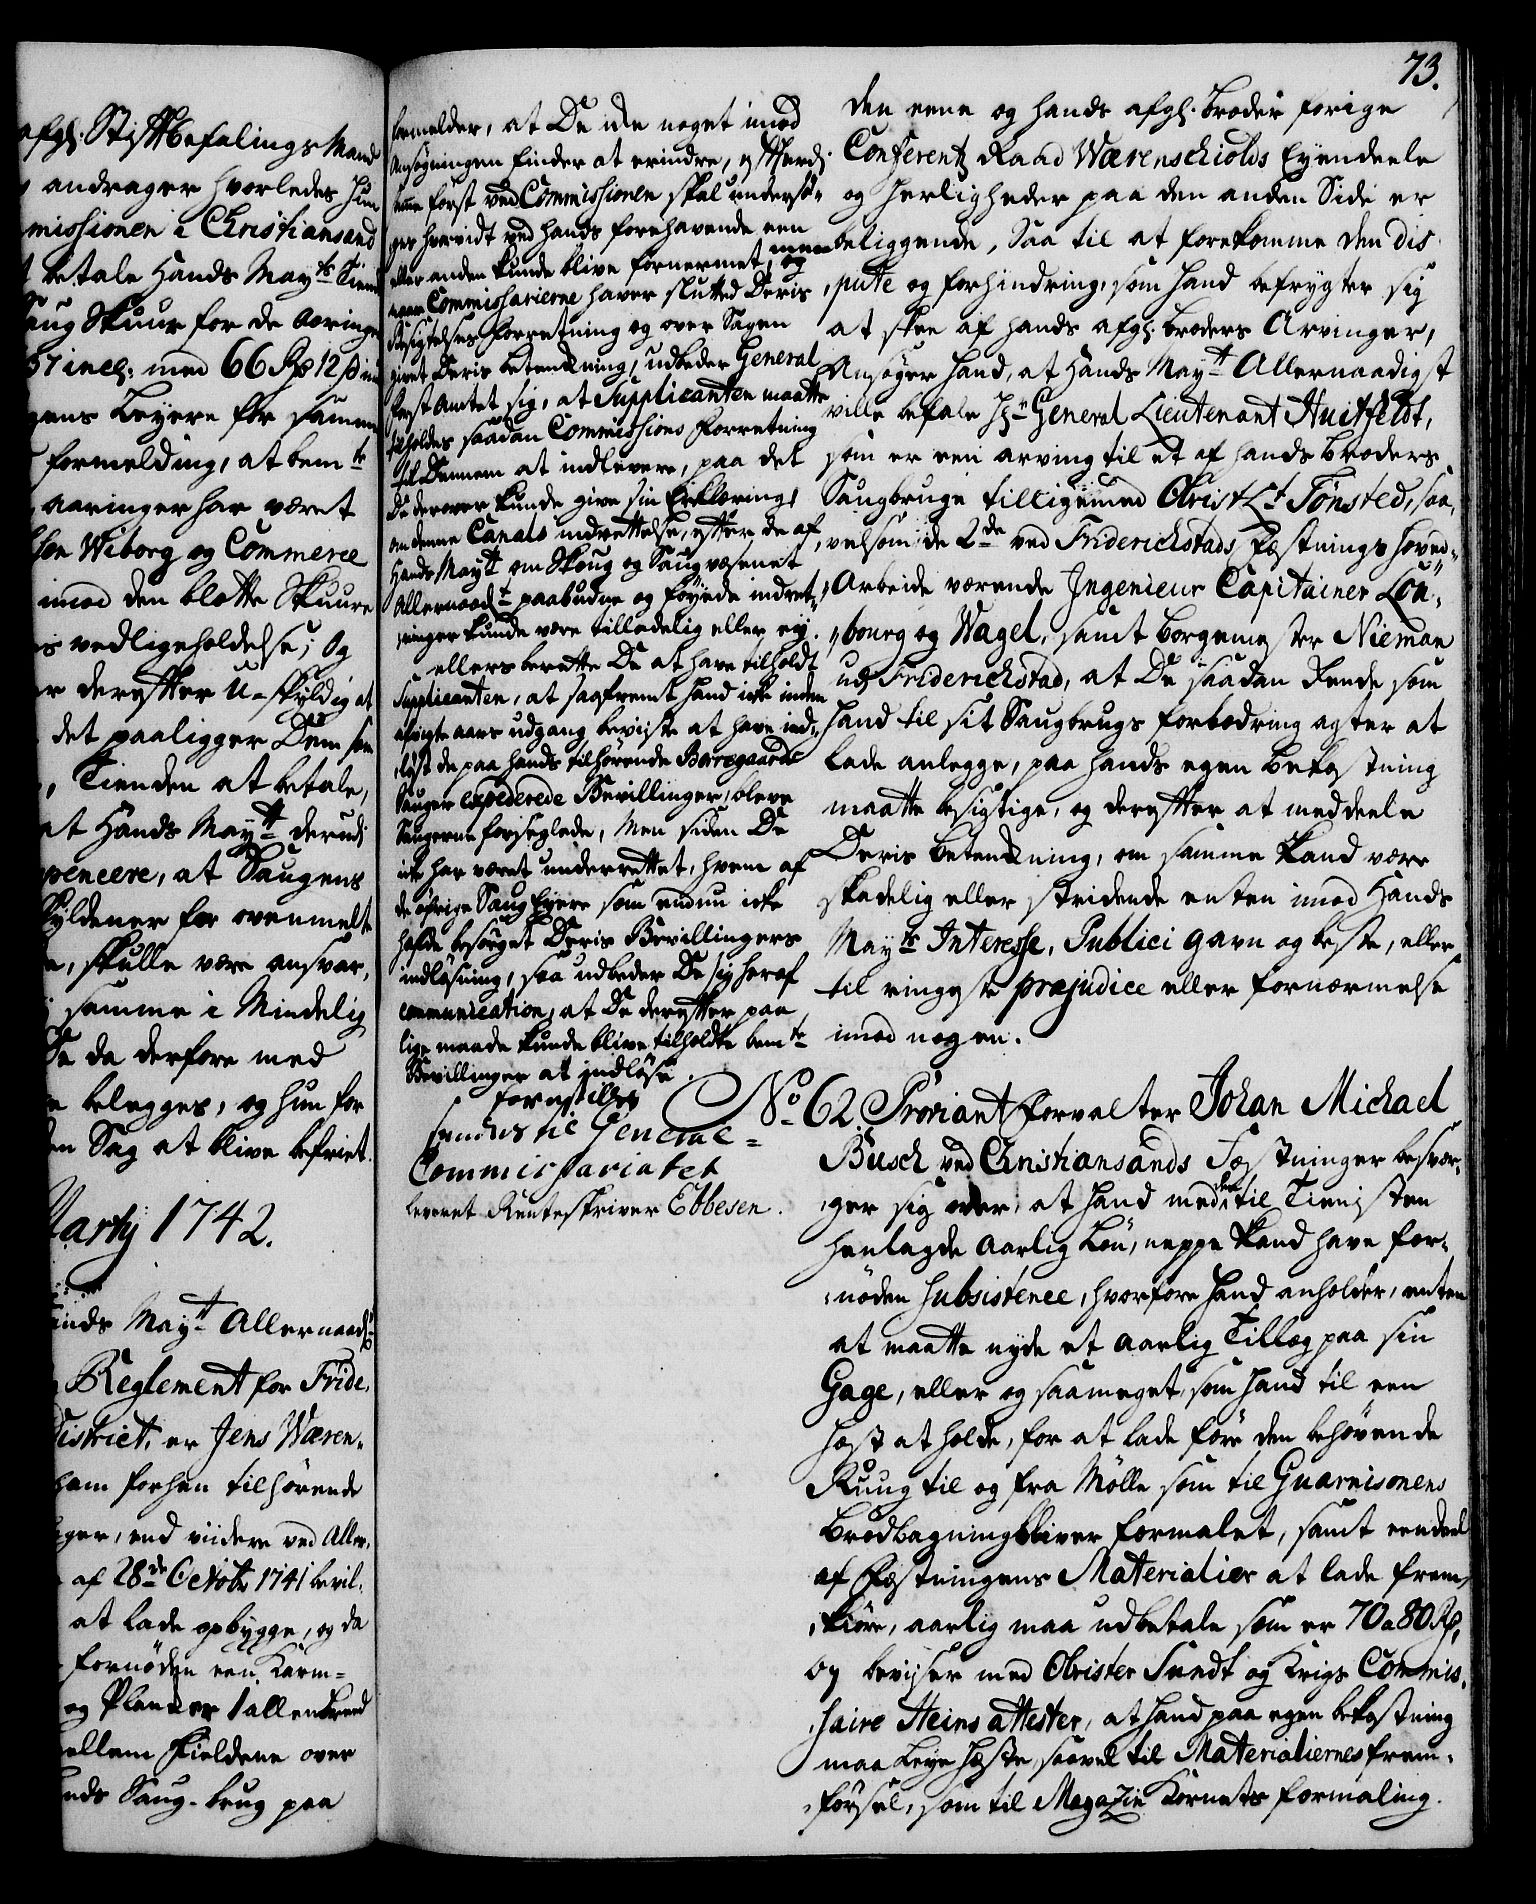 afgl. Stiftbefalings Mand
andrager hvorledes hun
missionen i Christiansand
betale Hands Mayts Tiende
Saug Skuur for de Aaringer
37 incl: med 66 Rd 12 s
gens Leyere for samme
formelding, at bemte
aaringer har været
son Wiborg og Commerce
imod den blotte Skuure
is vedligeholdelse; Og
er derefter U-skyldig at
det paaligger Dem som
Tienden at betale,
at Hands Maytt derudi
pencere, at Saugens
skyldener for ovenmelte
skulle være ansvar,
samme i Mindelig
da derfore med
belegges, og hun for
Sag at blive befriet.
Marty 1742.
Hands Mayt Allernaadl:
Reglement for Fride,
District, er Jens Wæren-
ham forhen tilhørende
ger, end viidere ved Aller,
af 28de Octobr 1741 bevil-
at lade opbygge, og da
fornøden een Karm-
og Plancker 1 allen bred
ellem Fieldene over
hands Saug-brug paa
formelder, at De icke noget imod
Ansøgningen finder at erindre,
først ved Commissionen skal undersø-
ges hvorvidt ved hands forehavende een
eller anden kunde blive fornermet, men og
naar Commissarierne haver slutted Deris
Besigtelses Forretning og over Sagen
givet Deris betenckning, udbeder General
Forst Amtet sig, at Supplicanten maatte
tilholdes saadan Commissions Forretning
til Dennem at indlevere, paa det
De derover kunde give sin Erklæring,
om denne Canals indrettelse, efter de af
Hands Mayt om Skoug og Saugvæsenet
Allernaadt paabudne og føyede indret-
ninger kunde være tilladelig eller ey.
ellers berette De at have tilholdt
Supplicanten, at saafremt hand icke inden
afvigte aars udgang beviiste at have ind-
løst de paa hands tilhørende Borregaards
Sauger expederede Bevillinger, bleve
Saugerne forseglede, Men siden De
icke har været underrettet, hvem af
de øfrige Saug Eyere som endnu icke
hafde besørget Deris Bevillingers
indløsning, saa udbeder De sig heraf
communication, at De derefter paa
lige maade kunde blive tilholdte bemte
Bevillinger at indløse.
forestilles
sendes til General-
Commissariatet
leveret Renteskriver Ebbesen.
73.
den eene og hands afgl. broder forige
Conferentz Raad Wærenschiolds Eyendeele
og Herligheder paa den anden Side er
beliggende, Saa til at forekomme den dis-
pute og forhindring, som hand befrygter sig
at skee af hands afgl. broders Arvinger,
Ansøger hand, at Hands Maytt Allernaadigst
ville befale Hr General Lieutenant Huitfeldt,
som er een arving til et af hands broders
Saugbruge tilligemed Obrist Lt Tønsted, saa-
velsom de 2de ved Friderichstads Fæstnings hoved-
Arbeide værende Ingenieur Capitainer Lön-
bourg og Wagel, samt borgemester Nieman
udi Friderichstad, at De saadan Rende som
hand til sit Saugbrugs forbedring agter at
lade anlegge, paa hands egen bekostning
maatte besigtige, og derefter at meddeele
Deris betenckning, om samme kand være
skadelig eller stridende enten imod Hands
Mayts Interesse, Publici gavn og beste, eller
til ringeste præjudice eller fornærmelse
imod nogen.
No 62. Proviant forvalter Johan Michael
Busch ved Christiansands Fæstninger besvær-
ger sig over, at hand med den til Tienisten
henlagde aarlig Løn, neppe kand have for-
nøden subsistence, hvorfore hand anholder, enten
at maatte nyde et aarlig Tillæg paa sin
Gage, eller og saameget, som hand til een
Hæst at holde, for at lade føre den behøvende
Ruug til og fra Mølle som til Guarnisonens
brødbagning bliver formalet, samt eendeel
af Fæstningens Materialier at lade frem-
kiøre, aarlig maa udbetale som er 70 a 80 Rd,
og beviser med Obrister Sundt og Krigs Commis-
saire Heins attester, at hand paa egen bekostning
maa Leye Hæste, saavel til Materialiernes frem-
førsel, som til Magazin Kornets formaling.